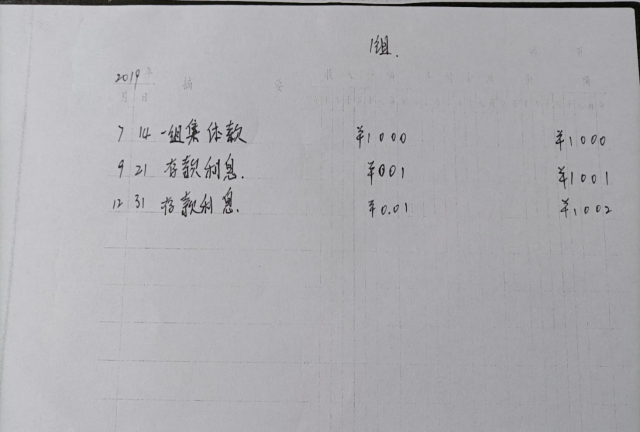 1组.
2019年
月 日 摘 要
7 14 一组集体款 ¥1000 ¥1000
9 21 存款利息. ¥001 ¥1001
12 31 存款利息. ¥0.01 ¥1002